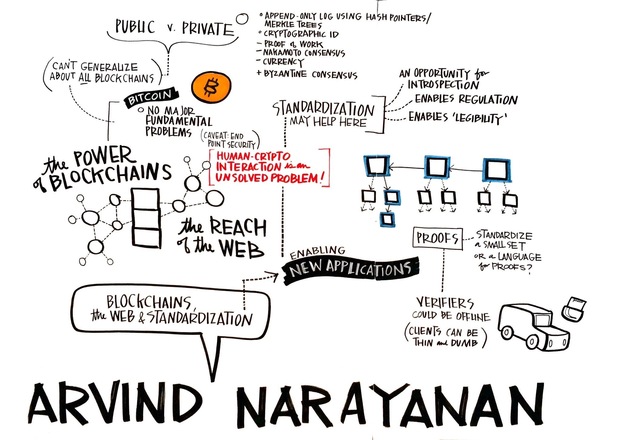 PUBLIC v. PRIVATE
APPEND-ONLY LOG USING HASH POINTERS/
MERKLE TREES
CRYPTOGRAPHIC ID
- PROOF of WORK
- NAKAMOTO CONSENSUS
- CURRENCY
+ BYZANTINE CONSENSUS
(CAN'T GENERALIZE
ABOUT ALL BLOCKCHAINS)
BITCOIN
NO MAJOR
FUNDAMENTAL
PROBLEMS
(CAVEAT: END
POINT SECURITY)
HUMAN-CRYPTO
INTERACTION is an
UNSOLVED PROBLEM!
STANDARDIZATION
MAY HELP HERE
AN OPPORTUNITY for
INTROSPECTION
ENABLES REGULATION
ENABLES 'LEGIBILITY'
the POWER
of BLOCKCHAINS
the REACH
of the WEB
ENABLING
NEW APPLICATIONS
PROOFS
STANDARDIZE
A SMALL SET
OR A LANGUAGE
for PROOFS?
VERIFIERS
COULD BE OFFLINE
(CLIENTS CAN BE
THIN and DUMB)
BLOCKCHAINS,
the WEB & STANDARDIZATION
ARVIND NARAYANAN